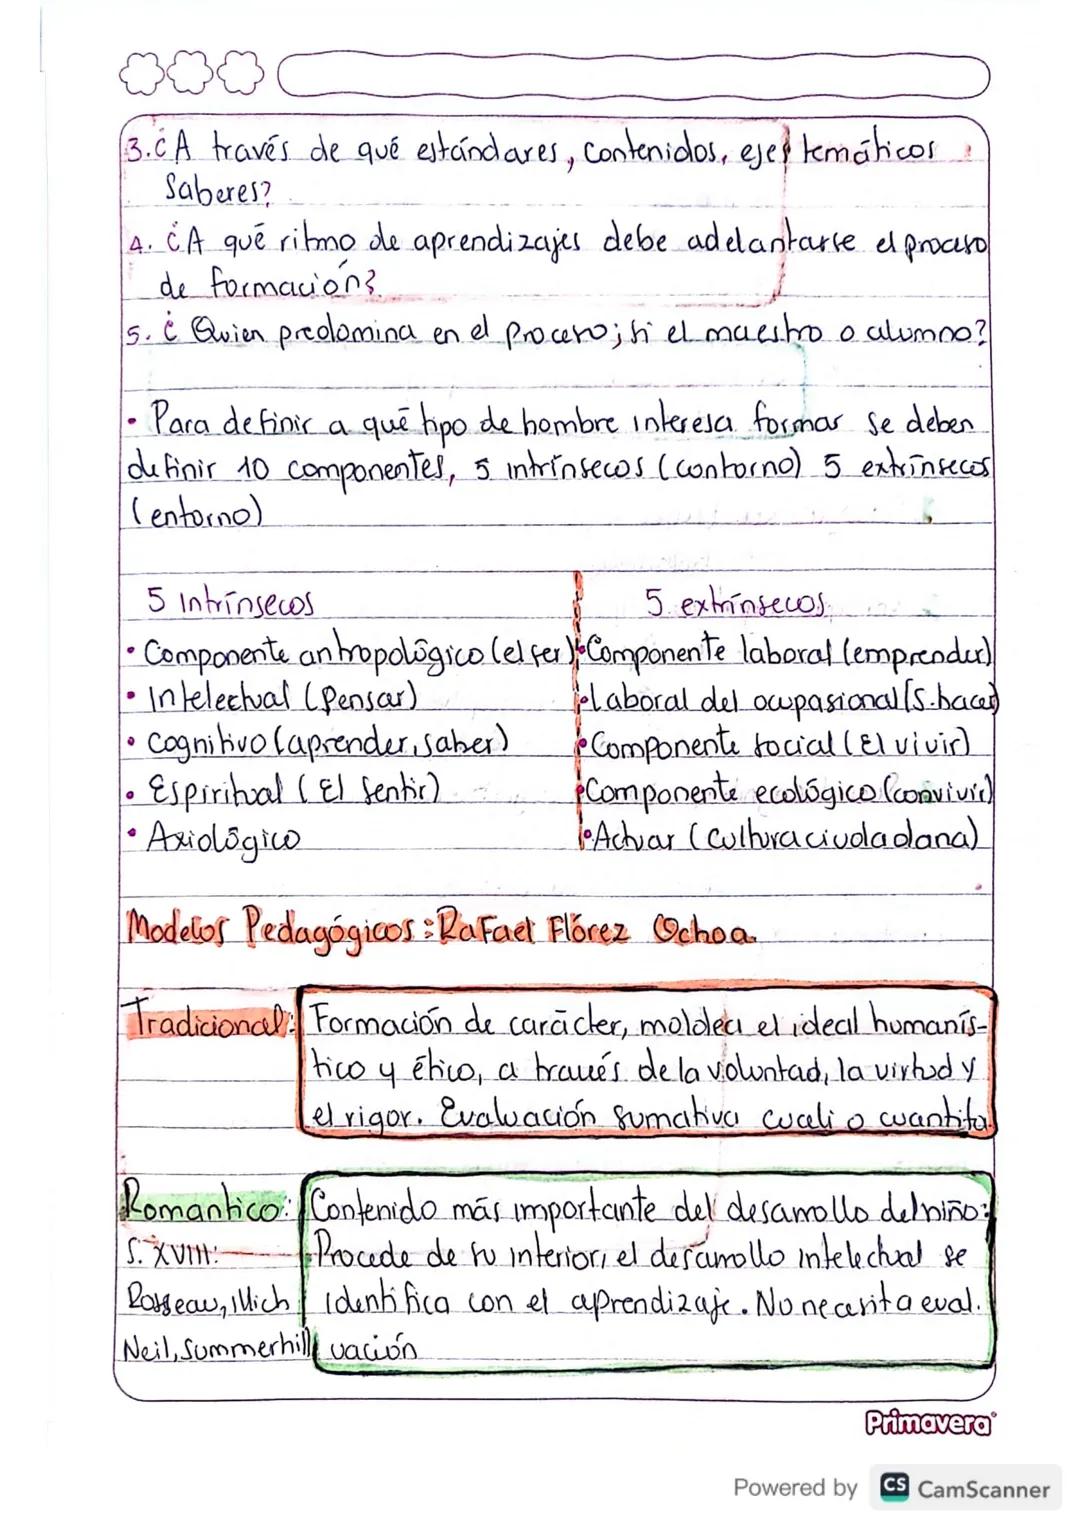 3. ¿A través de qué estándares, contenidos, ejes temáticos
Saberes?
4. ¿A qué ritmo de aprendizajes debe adelantarse el proceso
de formación?
5. ¿Quien predomina en el proceso; si el maestro o alumno?
• Para definir a qué tipo de hombre interesa formar se deben
definir 10 componentes, 5 intrínsecos (contorno) 5 extrínsecos
(entorno)
5 Intrínsecos
• Componente antropológico (el ser)
• Intelectual (Pensar)
• Cognitivo (aprender, saber)
• Espiritual (El Sentir)
• Axiológico
5 extrínsecos
• Componente laboral (emprender)
• Laboral del ocupasional (S. hacer)
• Componente social (El vivir)
• Componente ecológico (convivir)
• Actuar (Cultura ciudadana)
Modelos Pedagógicos: Rafael Flórez Ochoa
Tradicional:
Formación de carácter, moldea el ideal humanís-
tico y ético, a través de la voluntad, la virtud y
el rigor. Evaluación sumativa cuali o cuantita
Romantico:
S. XVIII:
Rosseau, Illich
Neil, Summerhill
Contenido más importante del desarrollo del niño:
Procede de su interior, el desarrollo intelectual se
identifica con el aprendizaje. No necesita eval.
uación
Primavera
Powered by CS CamScanner